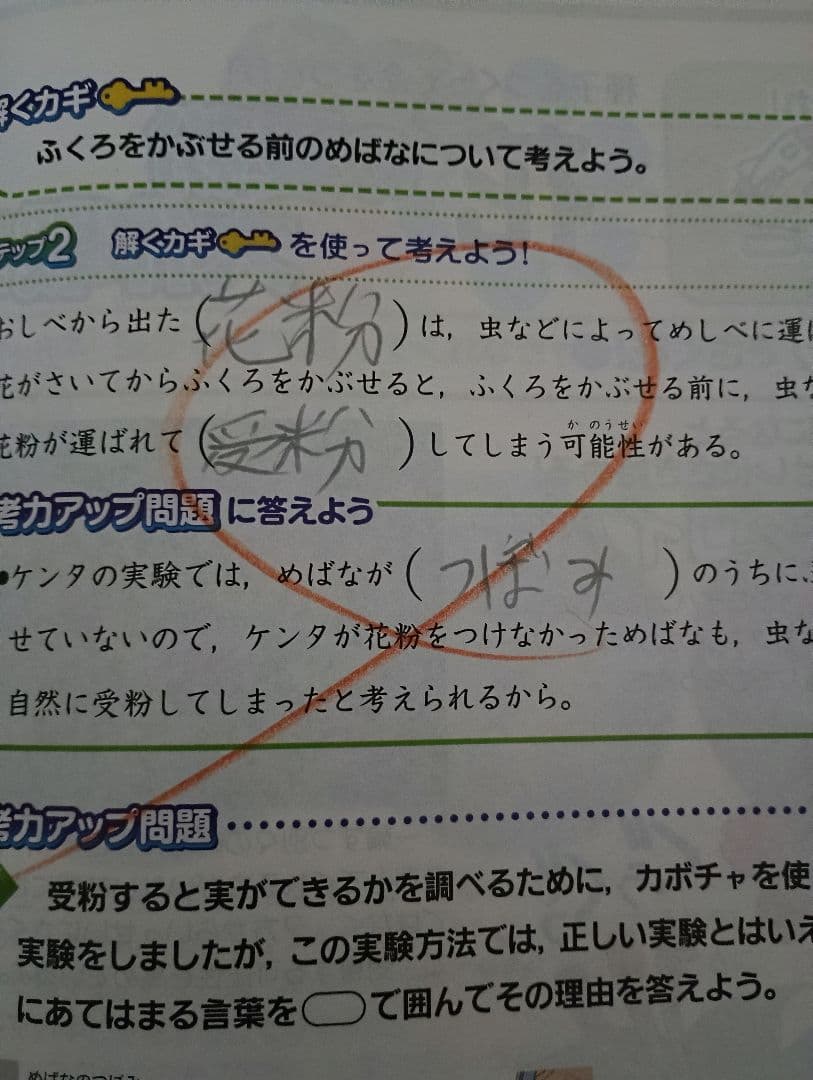 解くカギ
ふくろをかぶせる前のめばなについて考えよう。
テップ2 解くカギ を使って考えよう!
おしべから出た(花粉)は,虫などによってめしべに運
花がさいてからふくろをかぶせると,ふくろをかぶせる前に,虫な
花粉が運ばれて(受粉)してしまう可能性がある。
か のうせい
考力アップ問題 に答えよう
●ケンタの実験では,めばなが(つぼみ)のうちに,
せていないので,ケンタが花粉をつけなかっためばなも,虫な
自然に受粉してしまったと考えられるから。
考力アップ問題
受粉すると実ができるかを調べるために,カボチャを使
実験をしましたが,この実験方法では,正しい実験とはいえ
にあてはまる言葉を で囲んでその理由を答えよう。
めばなのつぼみ